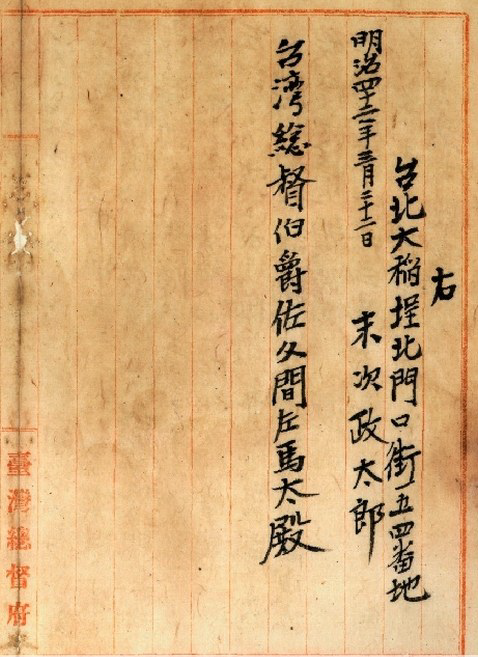 右
台北大稲埕北門口街一五四番地
明治四十二年三月二十二日　末次政太郎
台湾総督伯爵佐久間左馬太殿
臺灣總督府